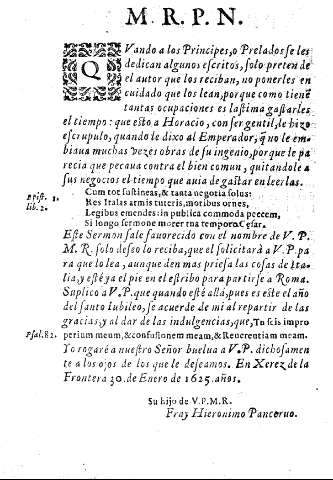 M. R. P. N.
QVando a los Principes, o Prelados se les
dedican algunos escritos, solo preten de
el autor que los reciban, no ponerles en
cuidado que los lean, porque como tienē
tantas ocupaciones es lastima gastarles
el tiempo: que esto a Horacio, con ser gentil, le hizo
escrupulo, quando le dixo al Emperador, q̄ no le em-
biaua muchas vezes obras de su ingenio, porque le pa
recia que pecaua contra el bien comun, quitandole a
sus negocios el tiempo que auia de gastar en leerlas.
Epist. 1. lib. 2.
Cum tot sustineas, & tanta negotia solus:
Res Italas armis tuteris, moribus ornes,
Legibus emendes: in publica commoda peccem,
Si longo sermone morer tua tempora Cęsar.
Este Sermon sale fauorecido con el nombre de V. P.
M. R. solo deseo lo reciba, que el solicitarà a V. P. pa
ra que lo lea, aunque den mas priesa las cosas de Ita-
lia, y estè ya el pie en el estribo para partirse a Roma.
Suplico a V. P. que quando estè allà, pues es este el año
del santo Iubileo, se acuerde de mi al repartir de
las gracias, y al dar de las indulgencias, que, Tu scis impro
Psal. 82. perium meum, & confusionem meam, & Reuerentiam meam.
Yo rogarè a nuestro Señor buelua a V. P. dichosamen
te a los ojos de los que le deseamos. En Xerez de la
Frontera 30. de Enero de 1625. años.
Su hijo de V. P. M. R.
Fray Hieronimo Pancoruo.